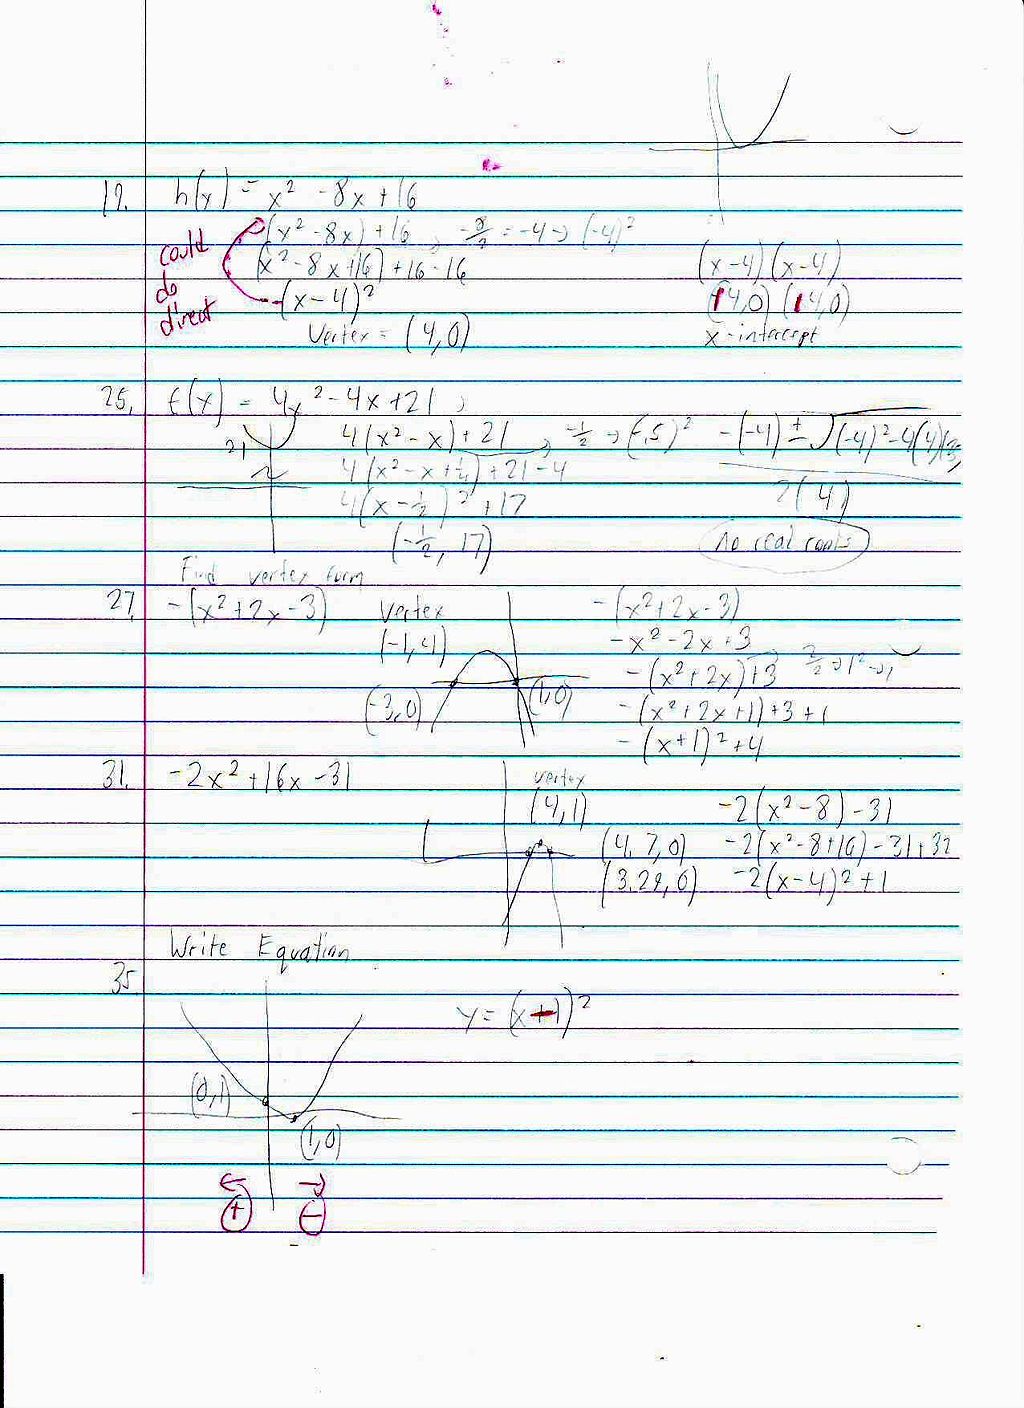 19. h(x) = x² - 8x + 16
(x² - 8x) + 16, -8/2 = -4 → (-4)²
(x² - 8x + 16) + 16 - 16
(x - 4)²
Vertex = (4, 0)
could
do
direct
(x - 4)(x - 4)
(4, 0) (4, 0)
x-intercept
25. f(x) = 4x² - 4x + 21,
21
4(x² - x) + 21, -1/2 → (-.5)²
4(x² - x + 1/4) + 21 - 4
4(x - 1/2)² + 17
(-1/2, 17)
-(-4) ± √(-4)² - 4(4)(
2(4)
no real roots
Find vertex form
27. -(x² + 2x - 3)
vertex
(-1, 4)
(-3, 0)
(1, 0)
-(x² + 2x - 3)
-x² - 2x + 3
-(x² + 2x) + 3 2/2 → 1² → 1
-(x² + 2x + 1) + 3 + 1
-(x + 1)² + 4
31. -2x² + 16x - 31
vertex
(4, 1)
(4.7, 0)
(3.29, 0)
-2(x² - 8) - 31
-2(x² - 8 + 16) - 31 + 32
-2(x - 4)² + 1
Write Equation
35.
y = (x - 1)²
(0, 1)
(1, 0)
← →
+ -